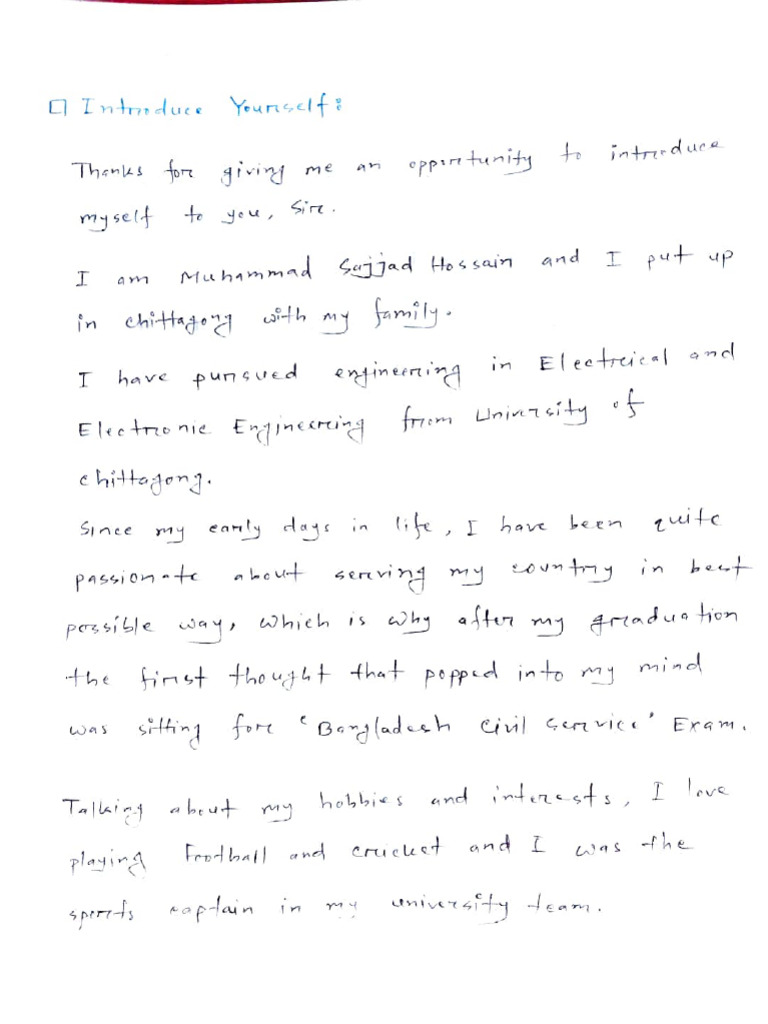 □ Introduce Yourself:
Thanks for giving me an opportunity to introduce
myself to you, Sir.
I am Muhammad Sajjad Hossain and I put up
in chittagong with my family.
I have pursued engineering in Electrical and
Electronic Engineering from University of
chittagong.
Since my early days in life, I have been quite
passionate about serving my country in best
possible way, which is why after my graduation
the first thought that popped into my mind
was sitting for 'Bangladesh Civil Service' Exam.
Talking about my hobbies and interests, I love
playing Football and cricket and I was the
sports captain in my university team.